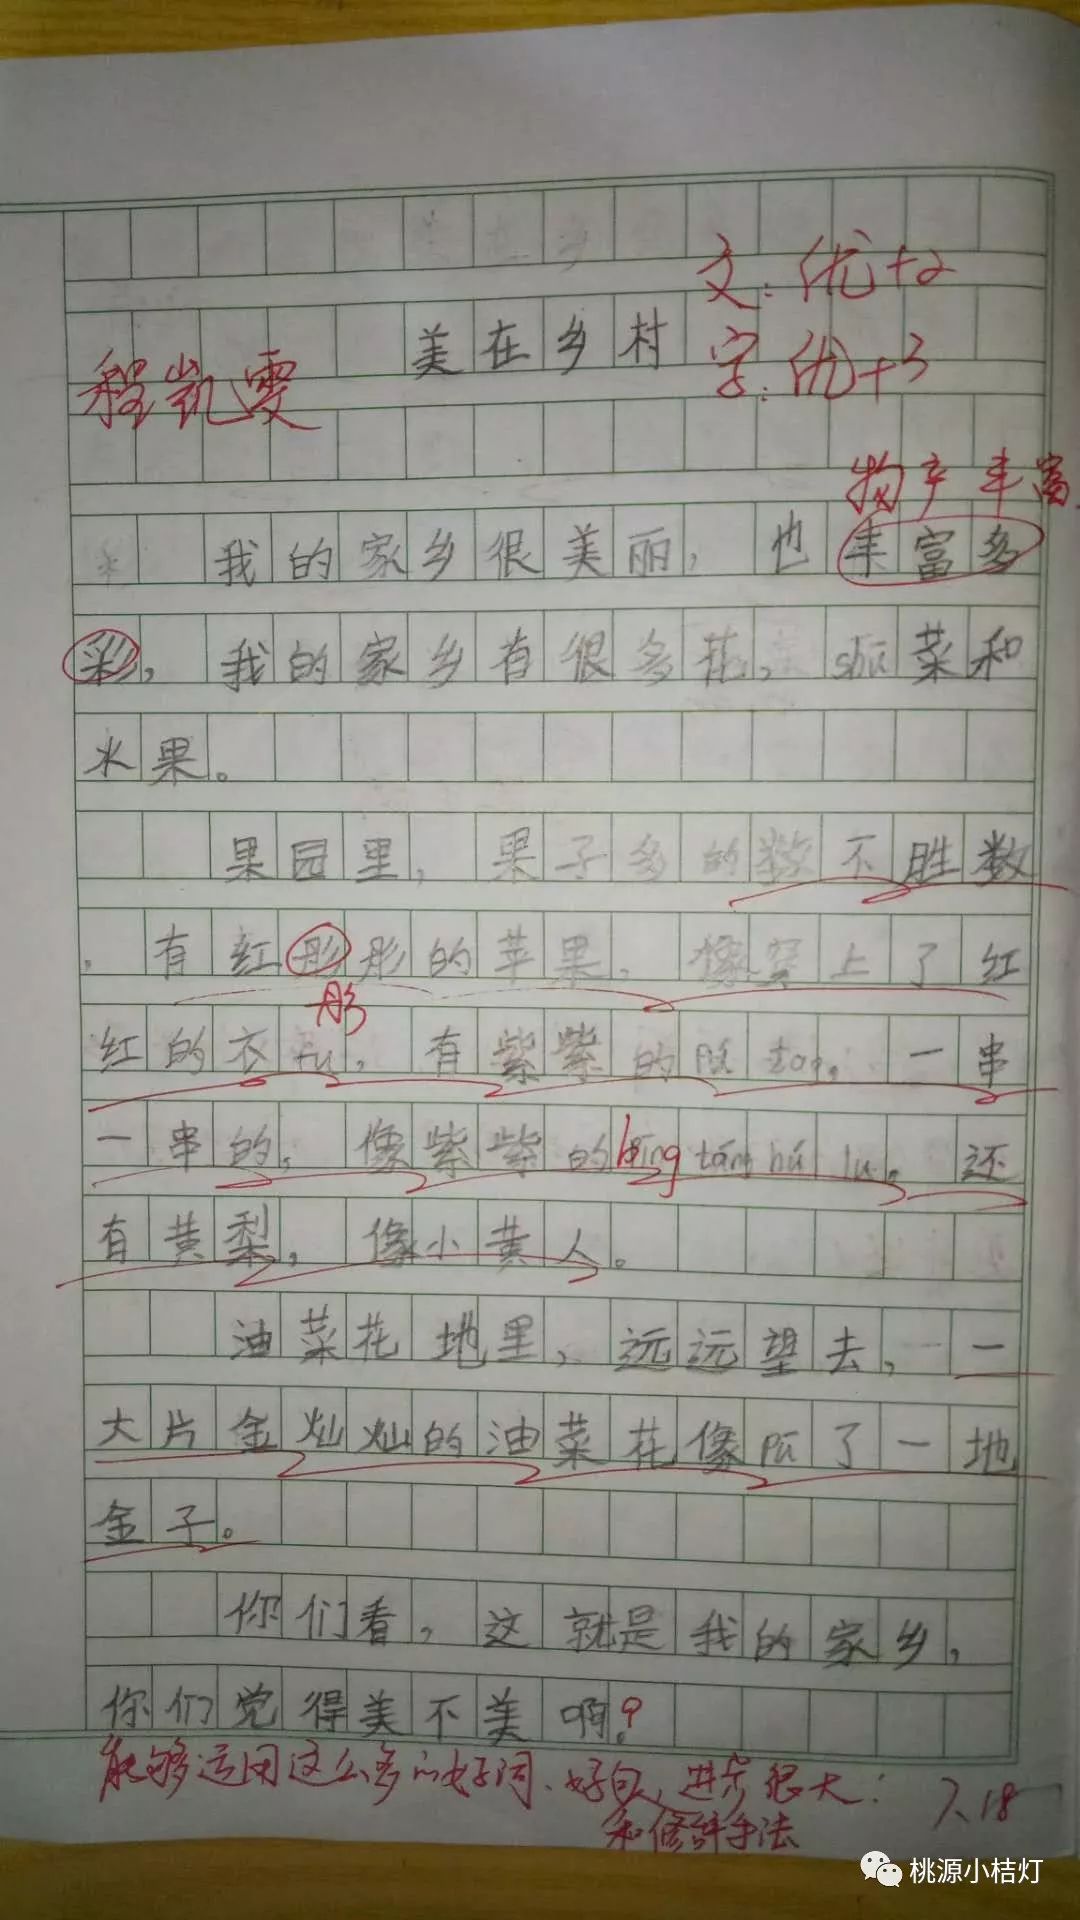 文:优+2
美在乡村
字:优+3
程凯雯
物产丰富
我的家乡很美丽，也丰富多
彩，我的家乡有很多花，shū菜和
水果。
果园里，果子多的数不胜数
，有红彤彤的苹果，像穿上了红
彤
红的衣fu，有紫紫的pú tao，一串
一串的，像紫紫的bīng táng hú lu，还
有黄梨，像小黄人。
油菜花地里，远远望去，一
大片金灿灿的油菜花像pū了一地
金子。
你们看，这就是我的家乡，
你们觉得美不美啊？
能够运用这么多的好词、好句，进步很大！
和修辞手法
7.18
桃源小桔灯